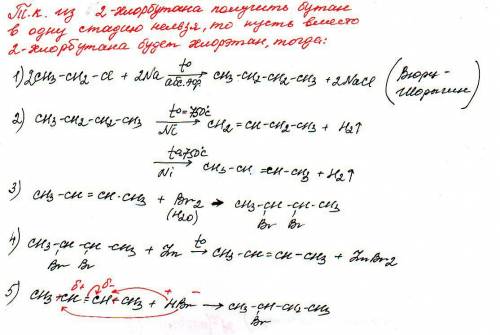 Т.к. из 2-хлорбутана получить бутан
в одну стадию нельзя, то пусть вместо
2-хлорбутана будет хлорэтан, тогда:
1) 2CH3-CH2-Cl + 2Na t° абс. эф. → CH3-CH2-CH2-CH3 + 2NaCl (Вюрц-Шорыгин)
2) CH3-CH2-CH2-CH3 t°=750°C Ni → CH2=CH-CH2-CH3 + H2↑
t=750°C Ni → CH3-CH=CH-CH3 + H2↑
3) CH3-CH=CH-CH3 + Br2 (H2O) → CH3-CH-CH-CH3
Br Br
4) CH3-CH-CH-CH3 + Zn t° → CH3-CH=CH-CH3 + ZnBr2
Br Br
δ+ δ- + -
5) CH3→CH=CH←CH3 + HBr → CH3-CH-CH2-CH3
Br